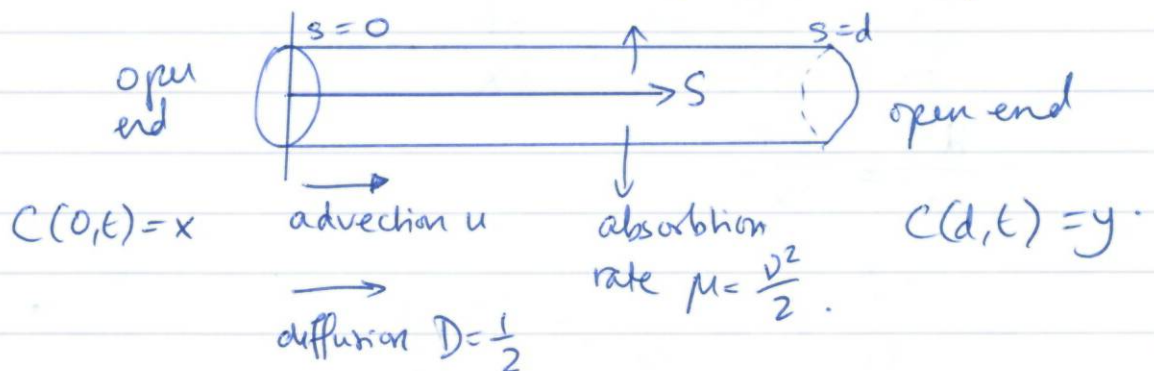 s=0 s=d
open end
S
open end
C(0,t)=x advection u absorbtion rate μ=ν²/2. C(d,t)=y.
diffusion D=1/2